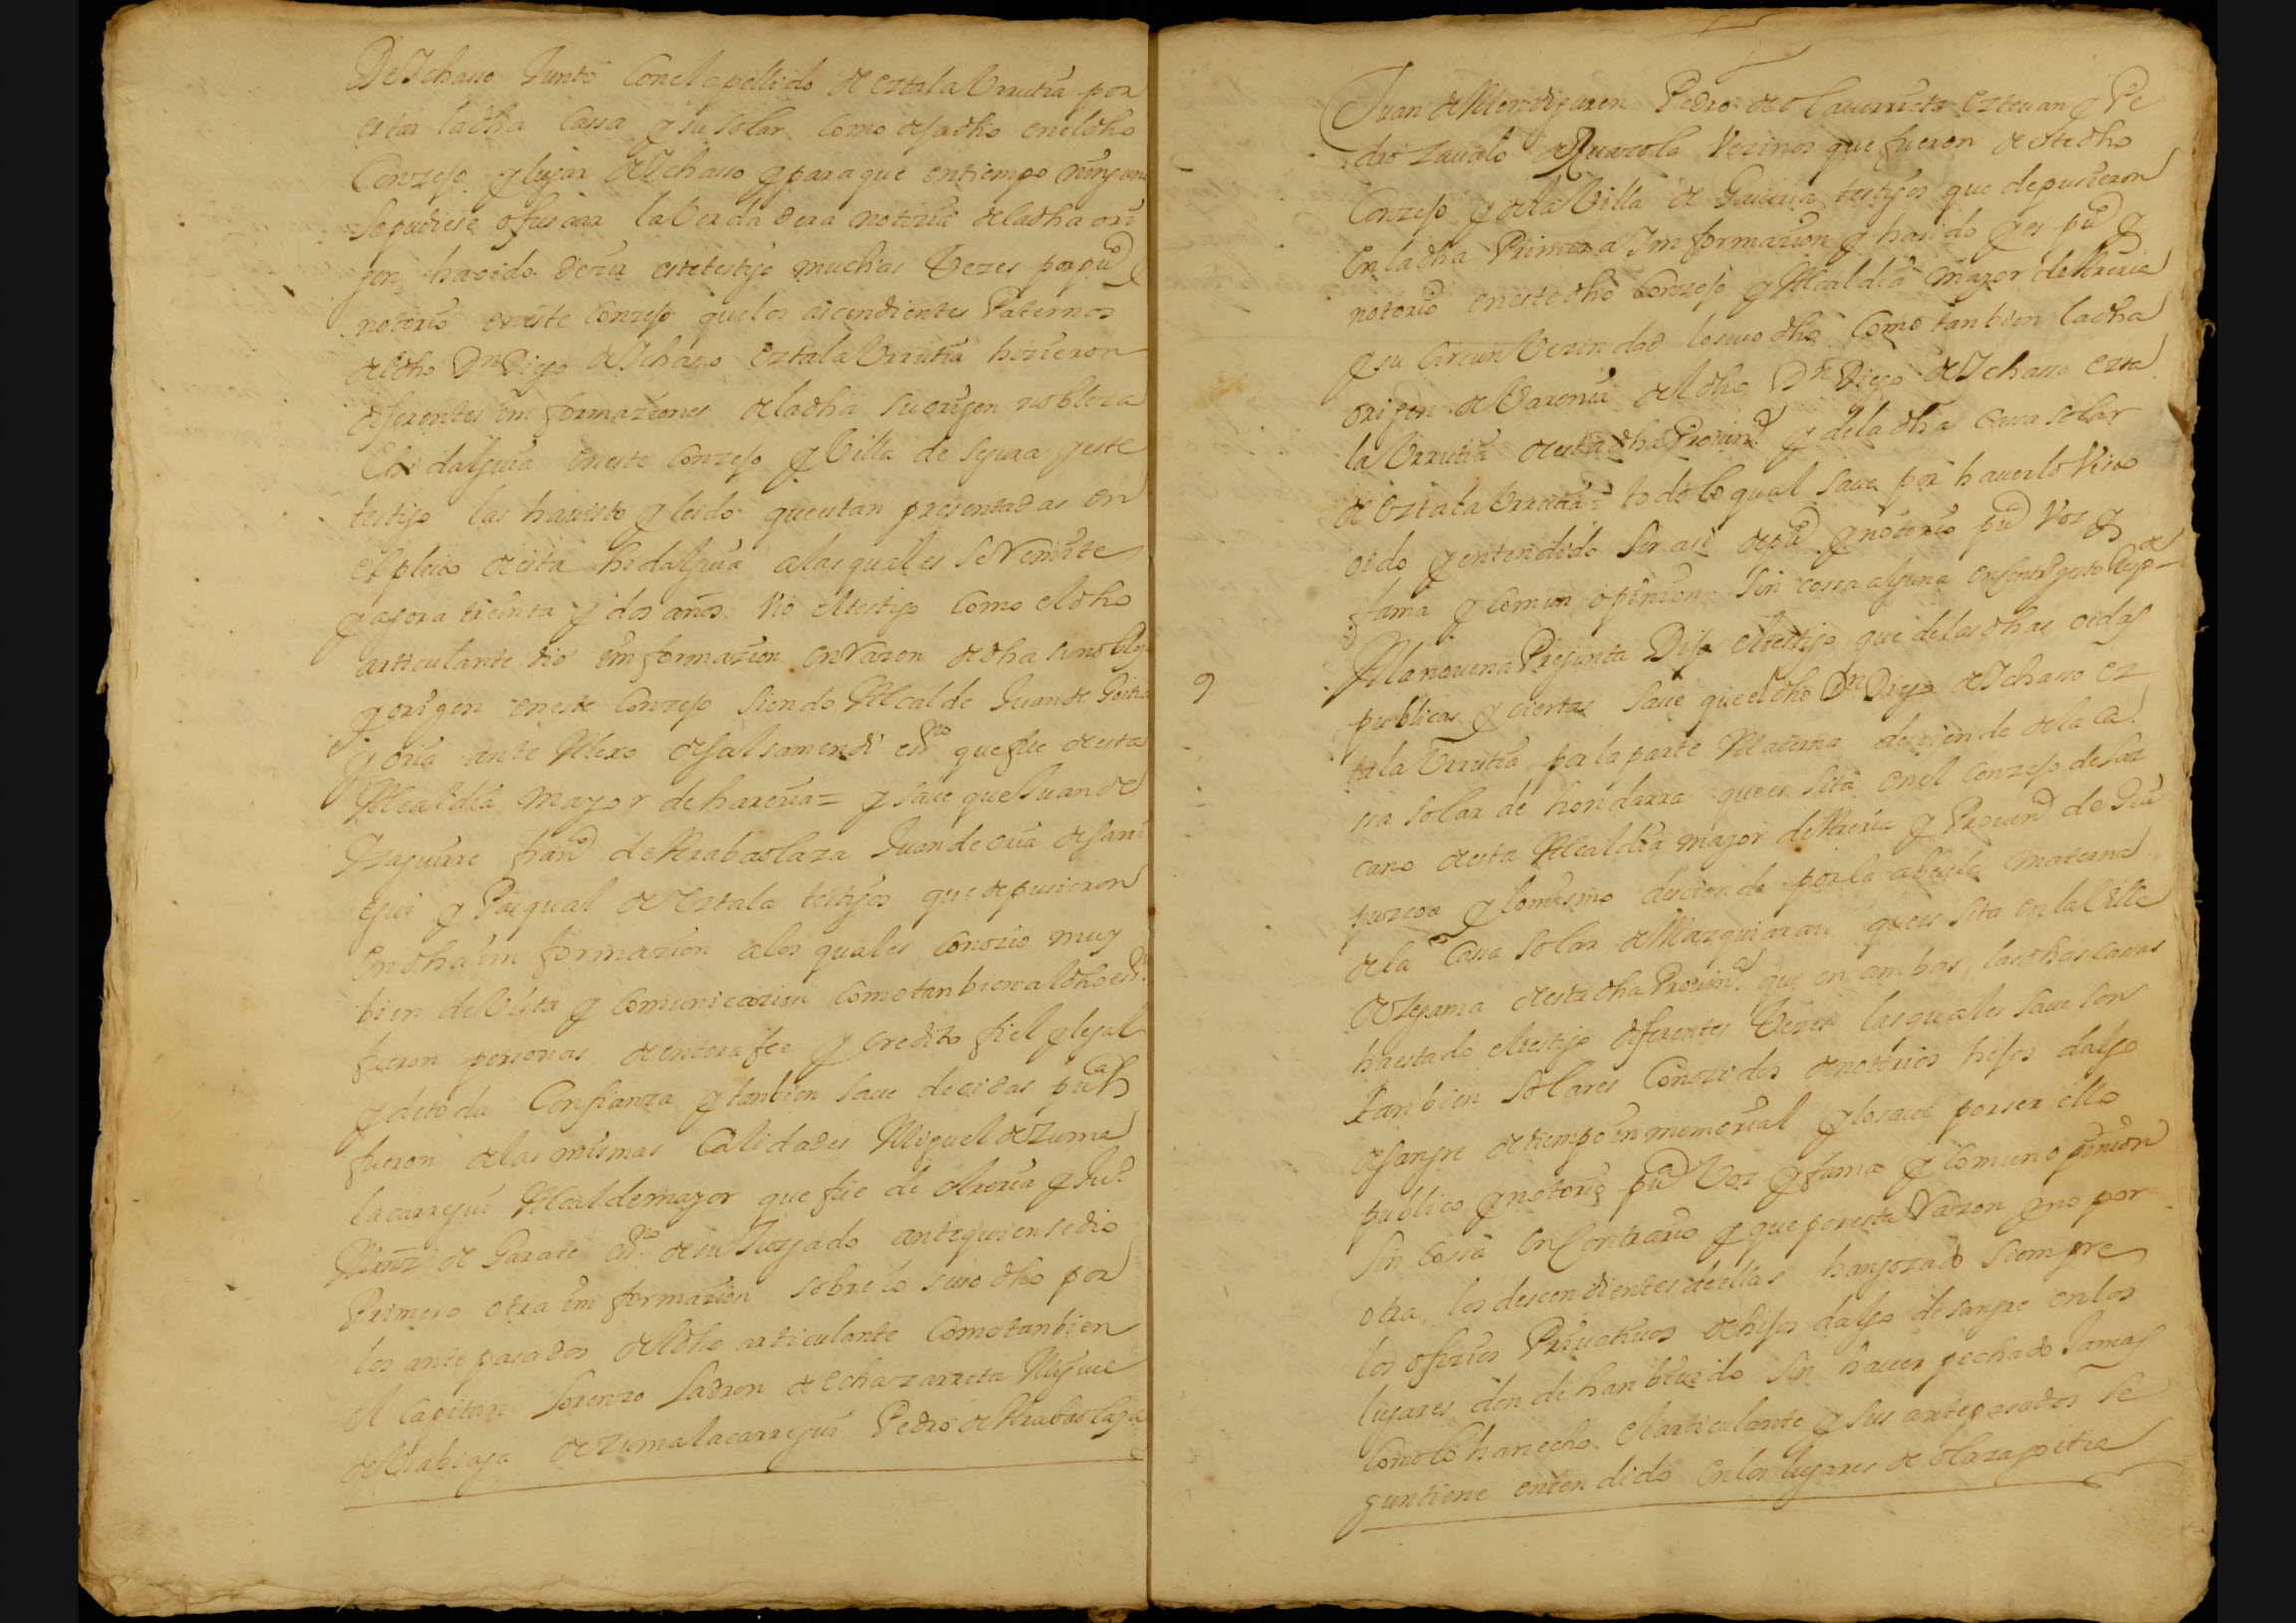 DeYchasso Junto Conelapellido de eztala Urrutia por
estar ladha Cassa y su solar Como dejadho eneldho
Conzejo y lugar deYchasso y paraque entiempo ninguno
sepudiese ofuscar laVerdadera notizia deladha ori
gen haoido dezir estetestigo muchas Vezes porpuco
notorio eneste Conzejo quelos aszendientes Paternos
deldho Dn Diego deYchasso eztala Urrutia hizieron
diferentes imformaziones deladha su origen nobleza
Ehidalguia eneste Conzejo y Villa de segura yeste
testigo las havisto yleido queestan presentadas en
elpleito deesta hidalguia alasquales seRemite
y agora treinta y dos años Vio eltestigo Como eldho
articulante dio imformazion enRazon dedha su nobleza
y origen eneste Conzejo siendo Alcalde Juan de Goitia
y oria ante Alexo de salsamendi essno quefue deesta
Alcaldia mayor de hareria = y saue que Juan de
Yzaguirre franco de Arabaolaza Juan de oria desans
egui y Pasqual de eztala testigos que depusieron
endha imformazion alos quales Conozio muy
bien deVista y Comunicazion Como tanbien aldho essno
fueron personas deenterafee y credito fiel y legal
y detoda Confianza y tanbien saue de oidas pucas
fueron delas mismas Calidades Miguel de Zuma
lacarregui Alcaldemayor que fue de Areria y Juo
Mrnz de Garate essno de su Juzgado antequien sedio
Primero otra imformazion sobre lo suso dho por
los antepasados deldho articulante Como tanbien
el Capitan Lorenzo Ladron de echazarreta Miguel
de Arabiaga de zumalacarregui Pedro de Arabaolaza
Juan de Mendiguren Pedro de olauerrieta eztevan y Pe
dro zaualo de Auzola Vezinos que fueron de este dho
Conzejo y dela Villa de Gauiria testigos que depusieron
En ladha Primera Imformazion y hasido y es puco y
notorio eneste dho Conzejo y Alcaldia mayor de Areria
y su Circun Vezindad losuso dho Como tanbien ladha
origen de Varonia deldho Dn Diego deYchasso ezta
la Urrutia deesta dha Prouina y deladha Cassa solar
de eztala Urrutia = todo loqual saue por hauerlo Visto
oido y entendido ser asi de puco y notorio puca Voz y
fama y Comun opinion sin cossa alguna en Contro yesto Respde
9
Alanovena Pregunta Dijo eltestigo que delasdhas oidas
publicas y ciertas saue queeldho Dn Diego deYchasso ez
tala Urrutia porla parte Materna desziende dela Ca
ssa solar de hondarra quees sita enel Conzejo de laz
cano deesta Alcaldia mayor de Areria y Prouina de Gui
puzcoa y lomismo desziende porla abuela materna
dela Cassa solar de Mazquiaran quees sita enla Villa
de Zegama deesta dha Prouina que en ambas lasdhas casas
haestado eltestigo diferentes Vezes lasquales saue son
tanbien solares Conozidos denotorios hijos dalgo
desangre detiempo inmemorial y losaue porser ello
publico y notorio puca Voz y fama y Comun opinion
sin Cossa en Contrario y que poresta Razon y no por
otra los descendientes deellas hangozado siempre
los ofizios Priuatiuos dehijos dalgo desangre enlos
lugares donde han biuido sin hauer pechado Jamas
Como lo hanecho elarticulante y sus antepasados se
guntiene entendido enlos lugares de olazagoitia